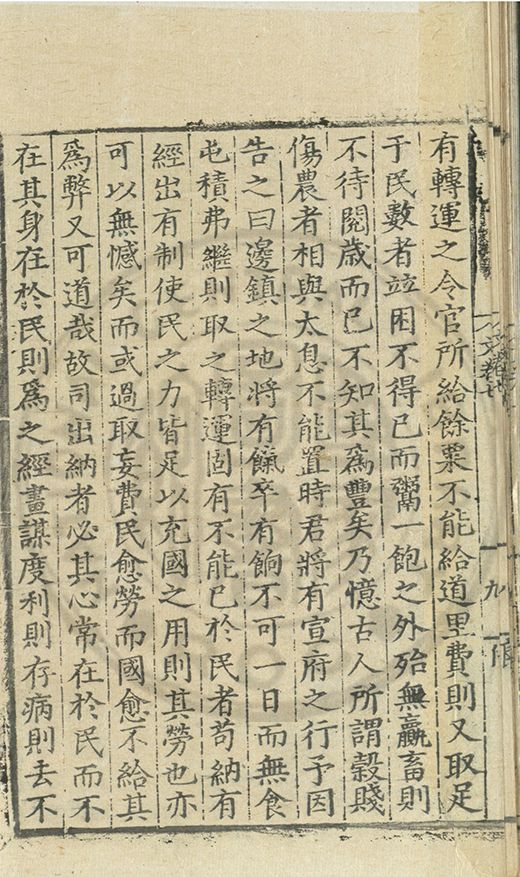 有轉運之令官所給餘粟不能給道里費則又取足
于民數者竝困不得已而鬻一飽之外殆無贏畜則
不待閱歲而已不知其為豐矣乃憶古人所謂穀賤
傷農者相與太息不能置時君將有宣府之行予因
告之曰邊鎮之地將有餼卒有餉不可一日而無食
屯積弗繼則取之轉運固有不能已於民者苟納有
經出有制使民之力皆足以充國之用則其勞也亦
可以無憾矣而或過取妄費民愈勞而國愈不給其
為弊又可道哉故司出納者必其心常在於民而不
在其身在於民則為之經畫謀度利則存病則去不
九